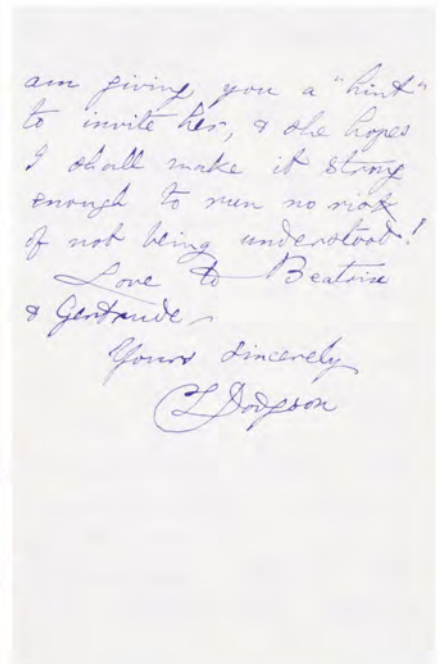 am giving you a "hint"
to invite her, & she hopes
I shall make it strong
enough to run no risk
of not being understood!
Love to Beatrice
& Gertrude –
Yours sincerely
CL Dodgson